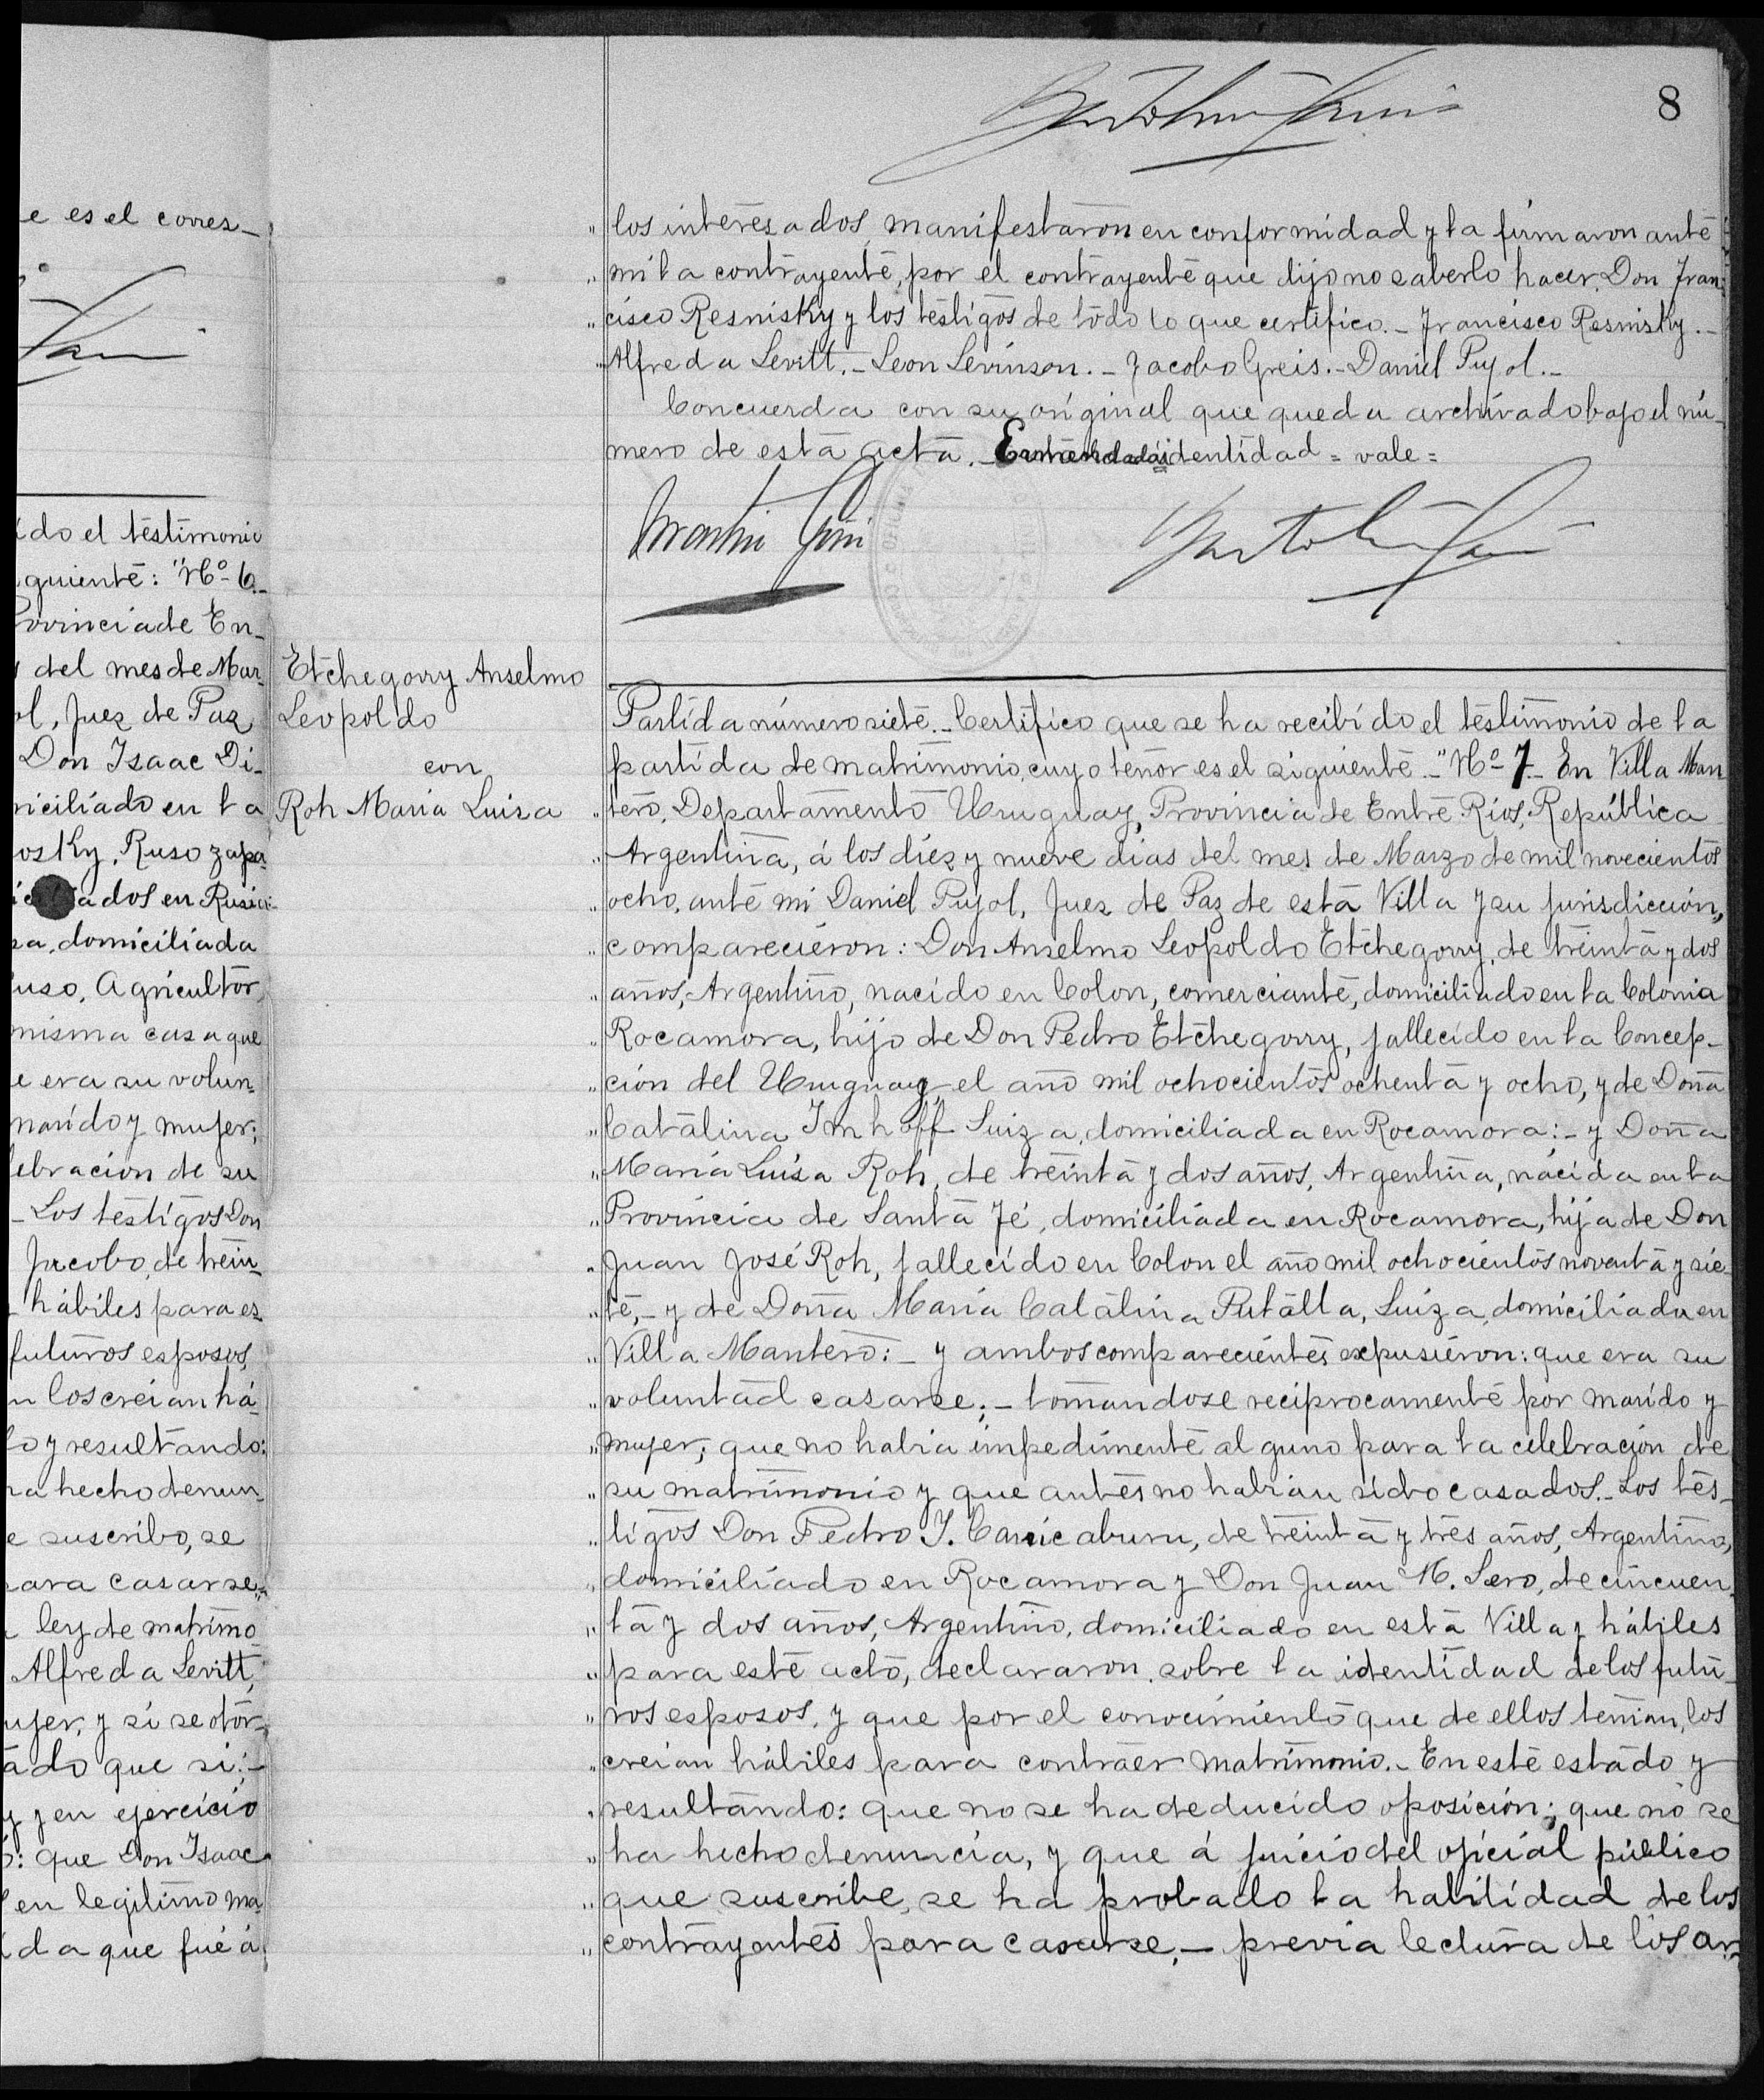 8
e es el corres_
ido el testimonio
guiente: "Nº 6._
Provincia de En_
del mes de Mar_
ol, Juez de Paz
Don Isaac Di_
iciliado en la
osky, Ruso zapa_
ados en Rusia
sa, domiciliada
uso, Agricultor,
misma casa que
e era su volun_
marido y mujer;
lebracion de su
_ Los testigos Don
Jacobo, de trein_
hábiles para es_
futuros esposos,
n los creian há_
lo y resultando:
ha hecho denun_
e suscribo, se
para casarse;_
ley de matrimo
Alfreda Levitt,
ujer, y si se otor_
ado que si;_
y en ejercicio
ó: que Don Isaac
en legitimo ma_
ida que fué á
Etchegorry Anselmo
Leopoldo
con
Roh Maria Luisa
" los interesados, manifestaron en conformidad y la firmaron ante
" mi la contrayente, por el contrayente que dijo no saberlo hacer, Don Fran_
" cisco Resnisky y los testigos de todo lo que certifico._ Francisco Resnisky._
" Alfreda Levitt._ Leon Levinson._ Jacobo Greis._ Daniel Pujol._
Concuerda con su original que queda archivado bajo el nú_
mero de esta acta._ Enmendado: identidad = vale =
Martin Goñi
Partida número siete._ Certifico que se ha recibido el testimonio de la
partida de matrimonio, cuyo tenor es el siguiente._ "Nº 7._ En Villa Man
" tero, Departamento Uruguay, Provincia de Entre Rios, República
" Argentina, á los diez y nueve dias del mes de Marzo de mil novecientos
" ocho, ante mi Daniel Pujol, Juez de Paz de esta Villa y su jurisdicción,
" comparecieron: Don Anselmo Leopoldo Etchegorry, de treinta y dos
" años, Argentino, nacido en Colon, comerciante, domiciliado en la Colonia
" Rocamora, hijo de Don Pedro Etchegorry, fallecido en la Concep_
" ción del Uruguay el año mil ochocientos ochenta y ocho, y de Doña
" Catalina Imhoff Suiza, domiciliada en Rocamora:_ y Doña
" Maria Luisa Roh, de treinta y dos años, Argentina, nacida en la
" Provincia de Santa Fé, domiciliada en Rocamora, hija de Don
" Juan José Roh, fallecido en Colon el año mil ochocientos noventa y sie_
" te,_ y de Doña Maria Catalina Putalla, Suiza, domiciliada en
" Villa Mantero:_ y ambos comparecientes expusieron: que era su
" voluntad casarse;_ tomandose reciprocamente por marido y
" mujer; que no habia impedimente alguno para la celebración de
" su matrimonio y que antes no habian sido casados._ Los tes_
" tigos Don Pedro I. Caricaburu, de treinta y tres años, Argentino,
" domiciliado en Rocamora y Don Juan M. Sero, de cincuen_
" ta y dos años, Argentino, domiciliado en esta Villa y hábiles
" para este acto, declararon sobre la identidad de los futu_
" ros esposos, y que por el conocimiento que de ellos tenian, los
" creian hábiles para contraer matrimonio._ En este estado y
" resultando: que no se ha deducido oposición; que no se
" ha hecho denuncia, y que á juicio del oficial público
" que suscribe, se ha probado la habilidad de los
" contrayentes para casarse,_ previa lectura de los ar_